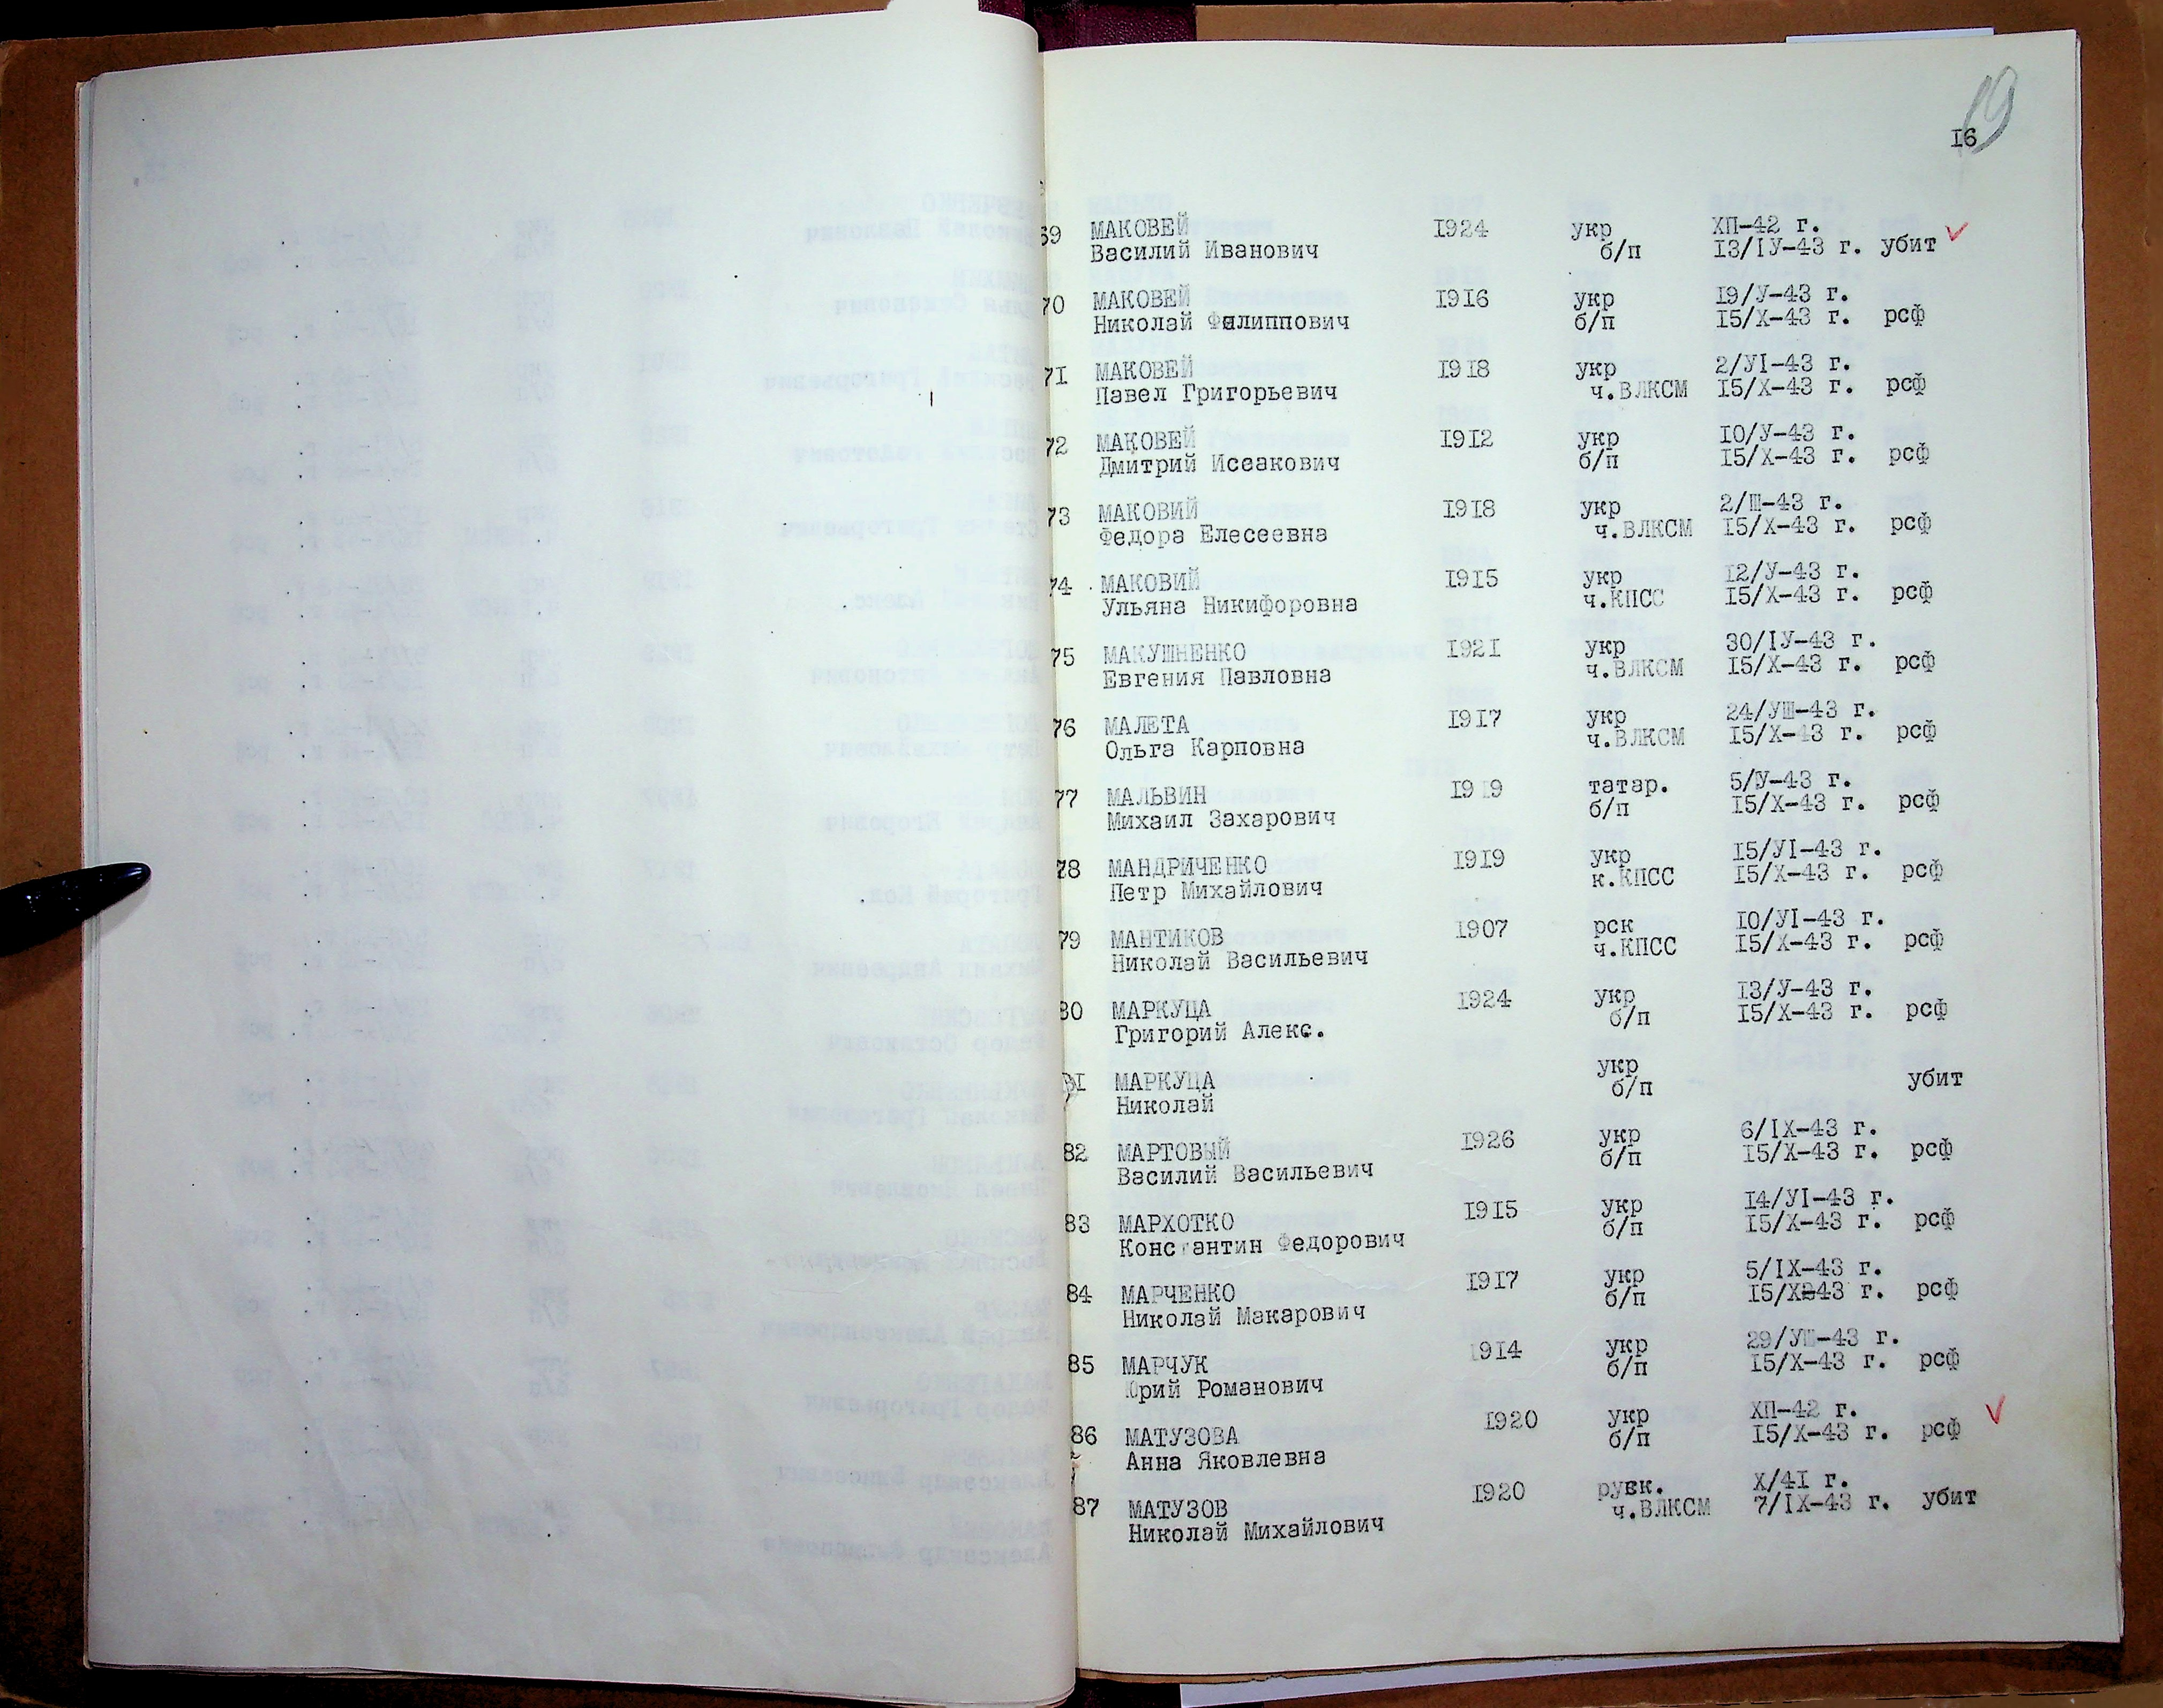 19
16
69 МАКОВЕЙ 1924 укр ХП-42 г.
Василий Иванович б/п 13/IУ-43 г. убит
70 МАКОВЕЙ 1916 укр 19/У-43 г.
Николай Филиппович б/п 15/Х-43 г. рсф
71 МАКОВЕЙ 1918 укр 2/УI-43 г.
Павел Григорьевич ч.ВЛКСМ 15/Х-43 г. рсф
72 МАКОВЕЙ 1912 укр 10/У-43 г.
Дмитрий Исеакович б/п 15/Х-43 г. рсф
73 МАКОВИЙ 1918 укр 2/Ш-43 г.
Федора Елесеевна ч.ВЛКСМ 15/Х-43 г. рсф
74 МАКОВИЙ 1915 укр 12/У-43 г.
Ульяна Никифоровна ч.КПСС 15/Х-43 г. рсф
75 МАКУШНЕНКО 1921 укр 30/IУ-43 г.
Евгения Павловна ч.ВЛКСМ 15/Х-43 г. рсф
76 МАЛЕТА 1917 укр 24/УШ-43 г.
Ольга Карповна ч.ВЛКСМ 15/Х-43 г. рсф
77 МАЛЬВИН 1919 татар. 5/У-43 г.
Михаил Захарович б/п 15/Х-43 г. рсф
78 МАНДРИЧЕНКО 1919 укр 15/УI-43 г.
Петр Михайлович к.КПСС 15/Х-43 г. рсф
79 МАНТИКОВ 1907 рск 10/УI-43 г.
Николай Васильевич ч.КПСС 15/Х-43 г. рсф
80 МАРКУЦА 1924 укр 13/У-43 г.
Григорий Алекс. б/п 15/Х-43 г. рсф
81 МАРКУЦА укр
Николай б/п убит
82 МАРТОВЫЙ 1926 укр 6/IХ-43 г.
Василий Васильевич б/п 15/Х-43 г. рсф
83 МАРХОТКО 1915 укр 14/УI-43 г.
Константин Федорович б/п 15/Х-43 г. рсф
84 МАРЧЕНКО 1917 укр 5/IХ-43 г.
Николай Макарович б/п 15/Х-43 г. рсф
85 МАРЧУК 1914 укр 29/УШ-43 г.
Юрий Романович б/п 15/Х-43 г. рсф
86 МАТУЗОВА 1920 укр ХП-42 г.
Анна Яковлевна б/п 15/Х-43 г. рсф
87 МАТУЗОВ 1920 рувк. Х/41 г.
Николай Михайлович ч.ВЛКСМ 7/IХ-43 г. убит